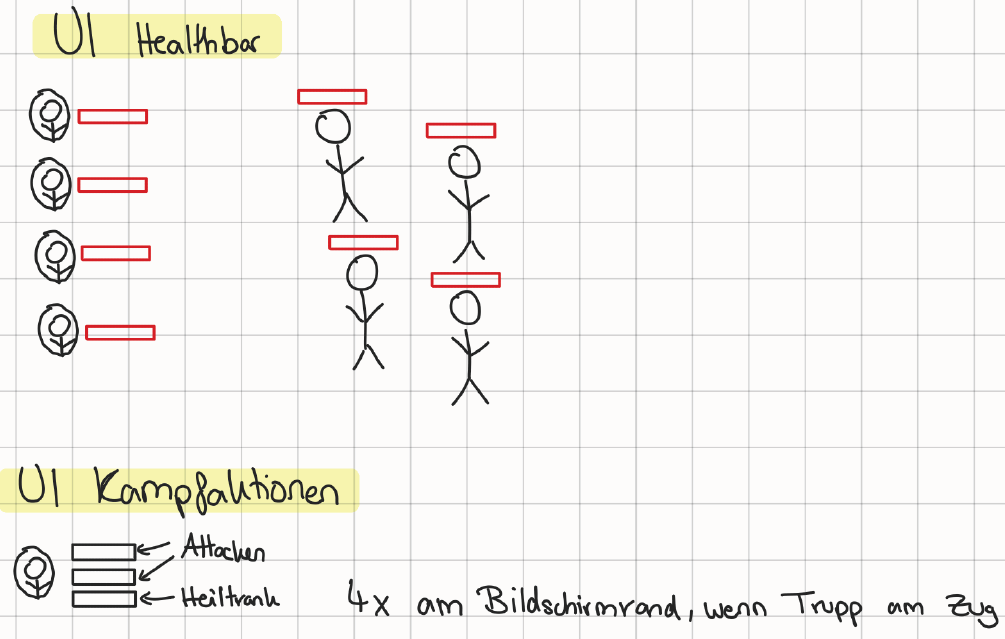 UI Healthbar
UI Kampfaktionen
Attacken
Heiltrank
4x am Bildschirmrand, wenn Trupp am Zug